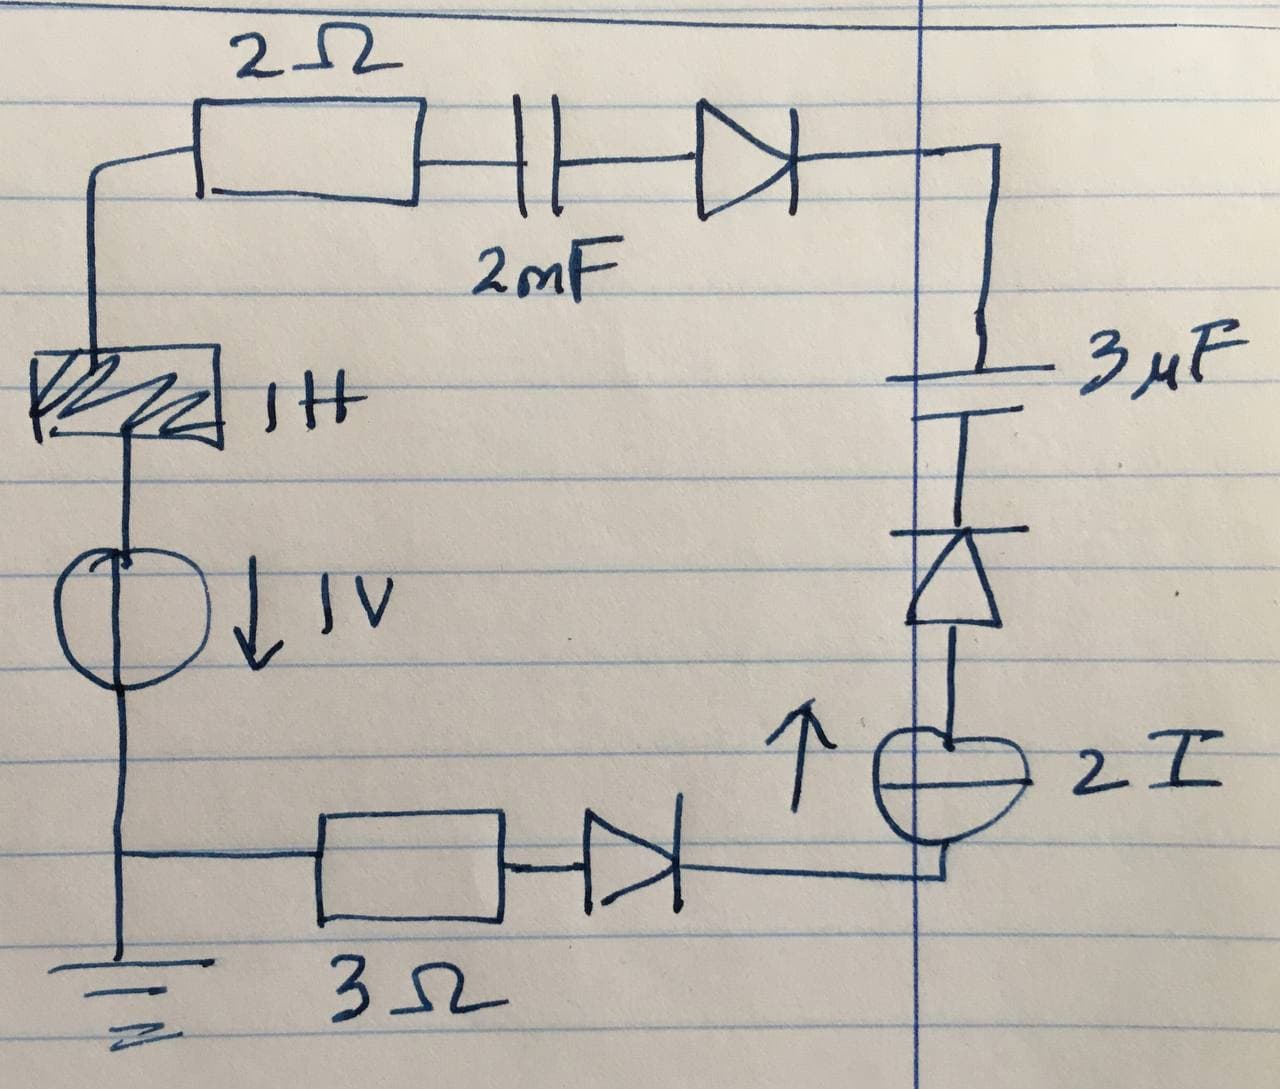 2Ω
2mF
3μF
1H
1V
2I
3Ω